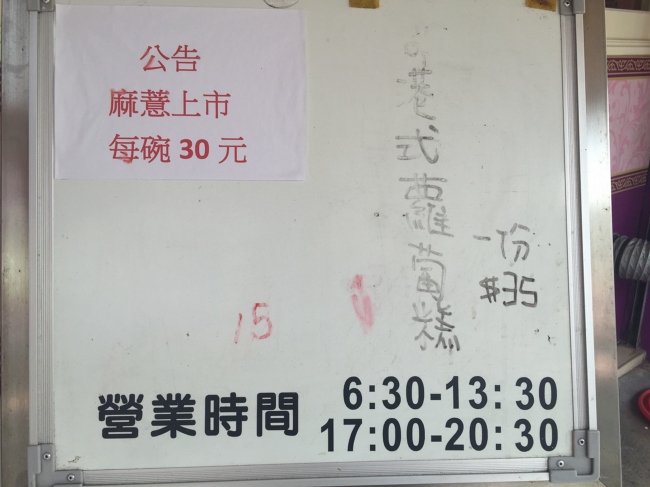 公告
麻薏上市
每碗 30 元
港式蘿蔔糕
一份
$35
15
營業時間
6:30-13:30
17:00-20:30